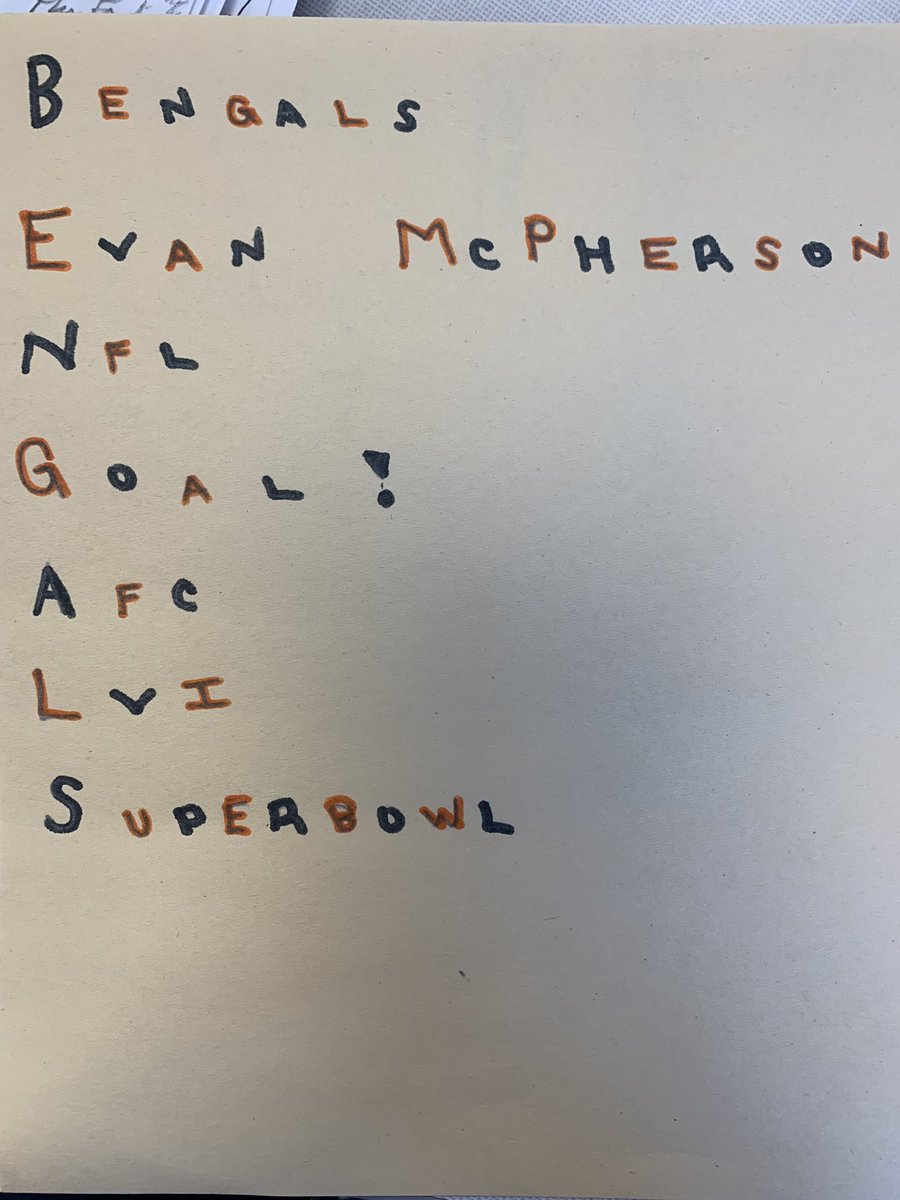 BENGALS
EVAN MCPHERSON
NFL
GOAL!
AFC
LVI
SUPERBOWL